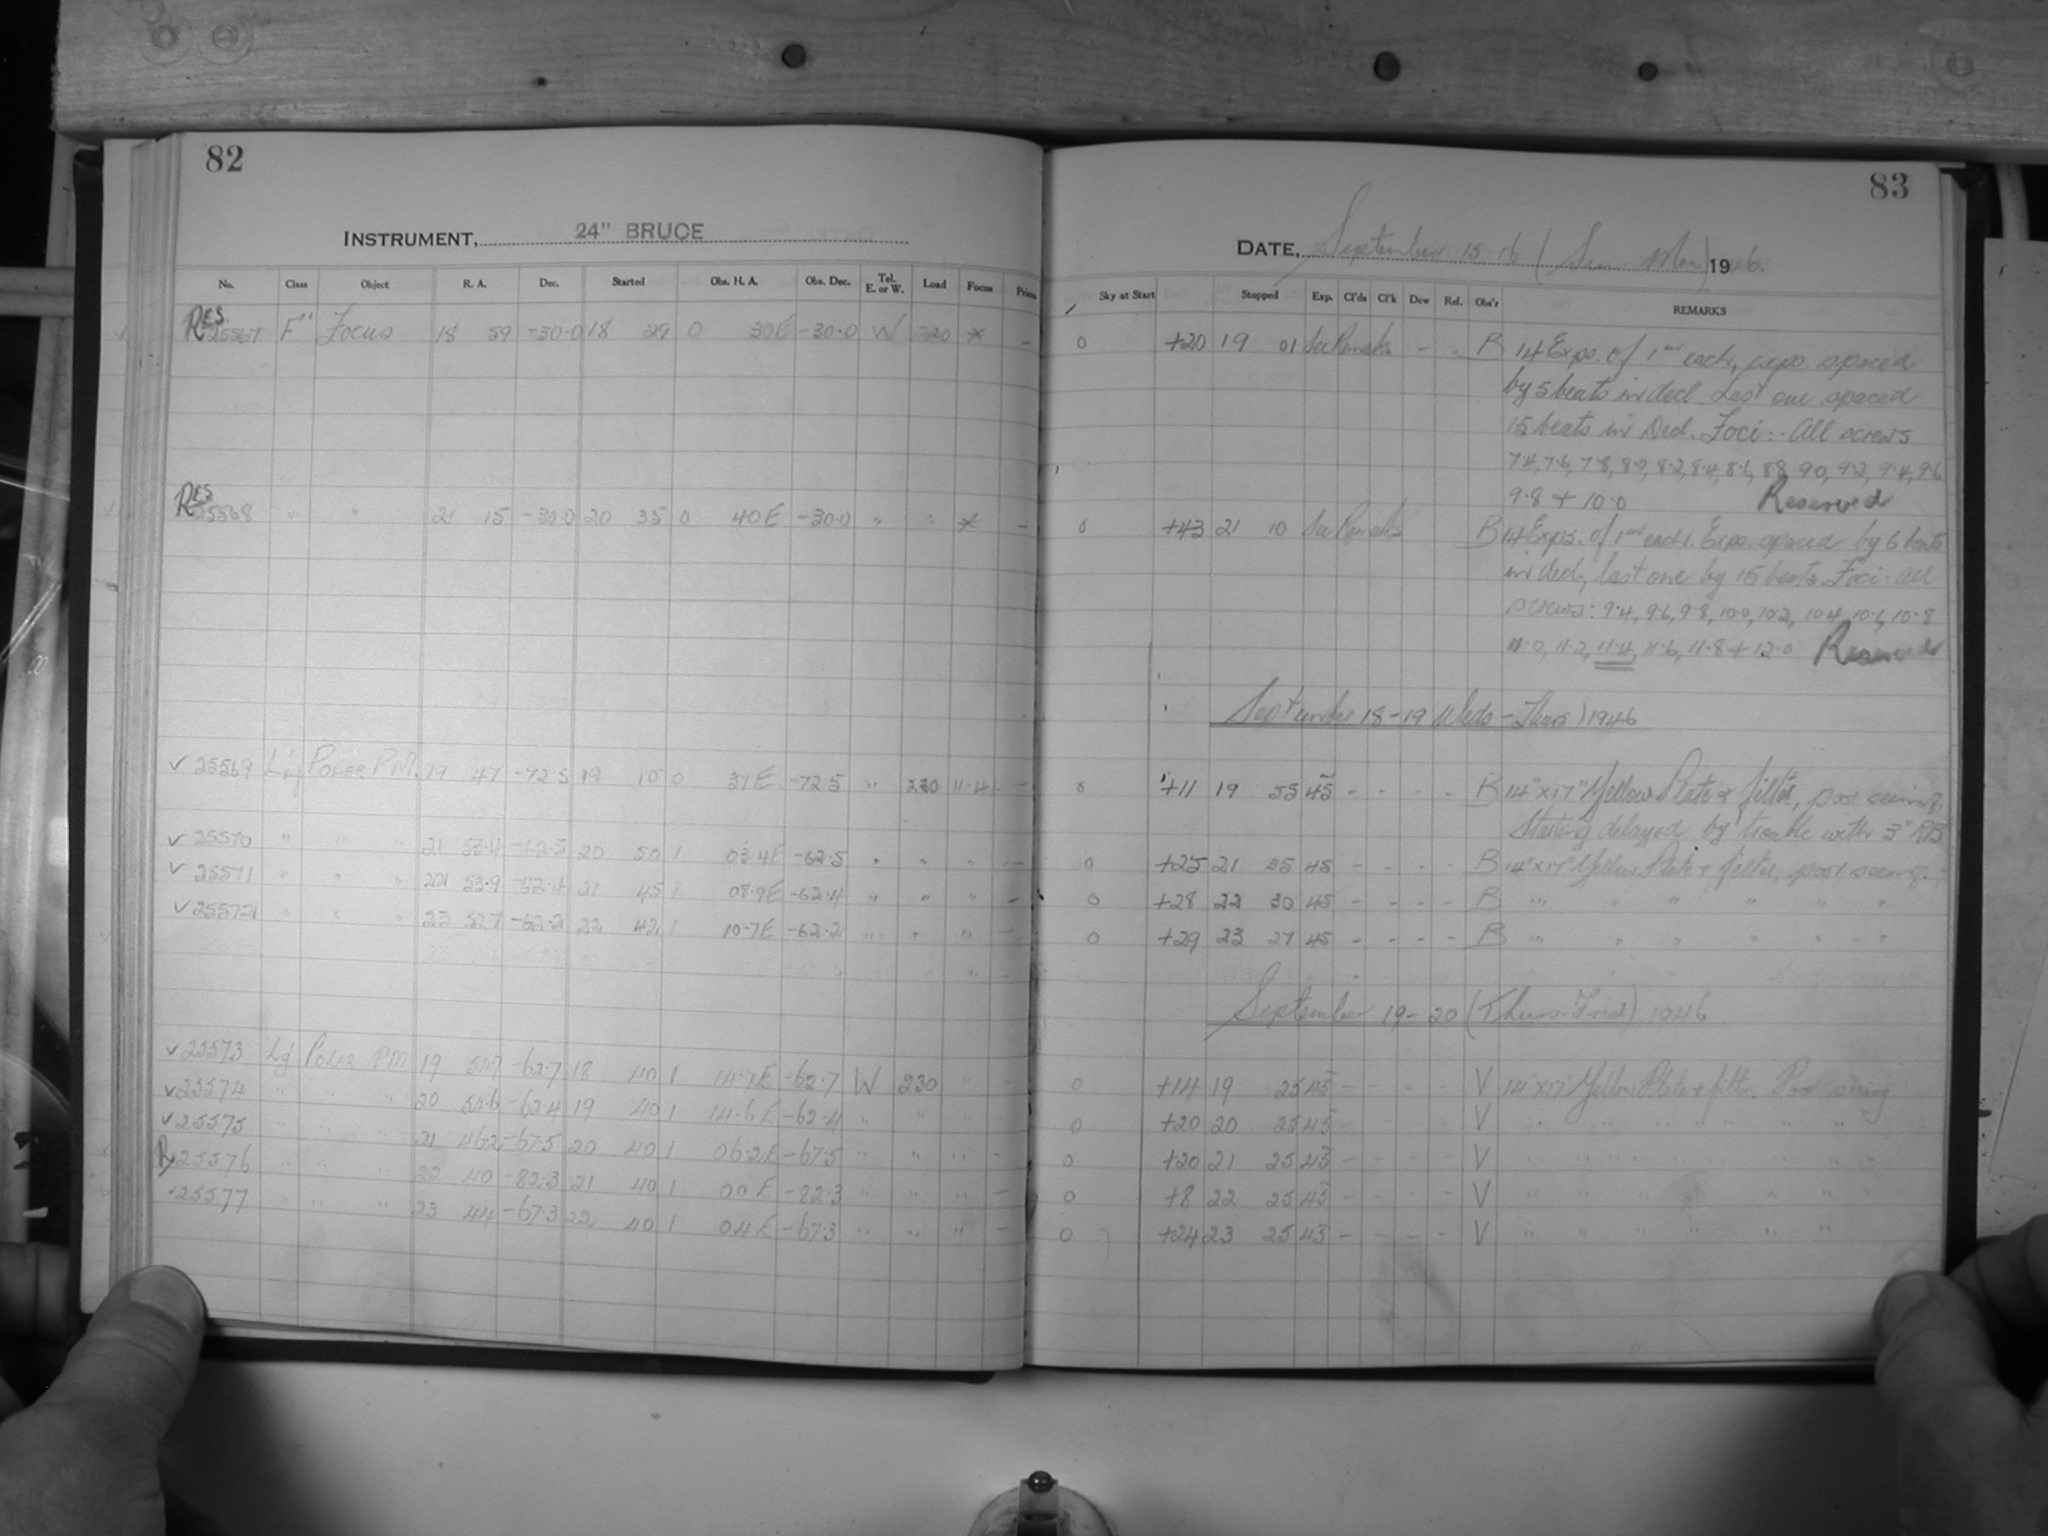 82
INSTRUMENT, 24" BRUCE
No. Class Object R. A. Dec. Started Obs. H. A. Obs. Dec. Tel. E. or W. Load Focus Prism
RES 25567 F" Focus 18 59 -30.0 18 29 0 30E -30.0 W 220 * -
RES 25568 " " 21 15 -30.0 20 35 0 40E -30.0 " " * -
v 25569 Power PM 19 47 -72.5 19 10 0 37E -72.5 " 230 11.4 -
v 25570 " " " 21 53.4 -62.5 20 50 1 03.4E -62.5 " " " -
v 25571 " " " 22 53.9 -62.4 21 45 1 08.9E -62.4 " " " -
v 25572 " " " 23 52.7 -62.2 22 42 1 10.7E -62.2 " " " -
v 25573 Power PM 19 54.7 -62.7 18 40 1 14.7E -62.7 W 230 " -
v 25574 " " " 20 54.6 -62.4 19 40 1 14.6E -62.4 " " " -
v 25575 " " " 21 46.2 -67.5 20 40 1 06.2E -67.5 " " " -
25576 " " " 22 40 -82.3 21 40 1 00E -82.3 " " " -
25577 " " " 23 44 -67.3 22 40 1 04E -67.3 " " " -
83
DATE, September 15-16 (Sun - Mon) 1946.
Sky at Start Stopped Exp. Cl'ds Cl'k Dew Ref. Obs'r REMARKS
0 +20 19 01 See Remarks - - B 14 Exps. of 1m each, exps. spaced
by 5 beats in decl. Last one spaced
15 beats in Decl. Foci:- All screws
7.4, 7.6, 7.8, 8.0, 8.2, 8.4, 8.6, 8.8, 9.0, 9.2, 9.4, 9.6
9.8 + 10.0 Reserved
0 +43 21 10 See Remarks B 14 Exps. of 1m each. Exps. spaced by 6 beats
in decl, last one by 15 beats. Foci- All
screws: 9.4, 9.6, 9.8, 10.0, 10.2, 10.4, 10.6, 10.8
11.0, 11.2, 11.4, 11.6, 11.8 + 12.0 Reserved
September 18-19 Weds - Thurs) 1946
0 +11 19 55 45 - - - - B 14"x17" Yellow Plate & filter, poor seeing.
Starting delayed by trouble with 3"
0 +25 21 35 45 - - - - B 14"x17" Yellow Plate & filter, poor seeing.
0 +28 22 30 45 - - - - B " " " " " "
0 +29 23 27 45 - - - - B " " " " " "
September 19-20 (Thurs-Frid) 1946
0 +14 19 25 45 - - - - V 14"x17" Yellow Plate & filter. Poor seeing
0 +20 20 25 45 - - - - V " " " " " "
0 +20 21 25 45 - - - - V " " " " " "
0 +8 22 25 45 - - - - V " " " " " "
0 +24 23 25 45 - - - - V " " " " " "